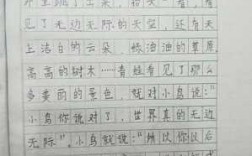 井里跳了出来，抬头一看，看
见了无边无际的天空，还有天
上洁白的云朵，绿油油的草原
高高的树木……青蛙看见了那么
多美丽的景色，就对小鸟说：“
小鸟你说对了，世界真的无边
无际”。小鸟就说：“所以你以后